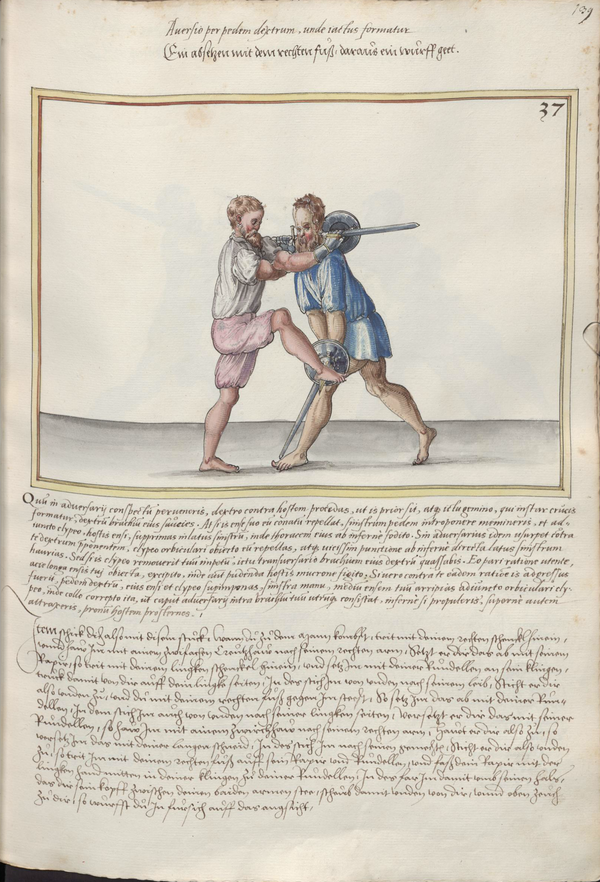 139
Aversio per pedem dextrum, unde iactus formatur
Ein absetzen mit dem rechten fuß, daraus ein wurff geet.
37
Quū in adversarij conspectū perveneris, dextro contra hostem procedas, ut is prior sit, atq ictu gemino, qui instar crucis
formatur, dextrū brachiū eius saucies. At si is ense suo eū conatū repellat, sinistrum pedem introponere memineris, et ad-
iunato clypeo, hostis ensē, supprimas in latus sinistrū, inde thoracem eius ab inferne fodito. Sin adversarius idem usurpet cōtra
te dextrum pponentem, clypeo orbiculari obverso eū repellas, atq vicissim punctione ab inferne directa latus sinistrum
haurias. Sed si is clypeo removerit tuū impetū, ictu transversario brachium eius dextrū quassabis. Eo pari ratione utente,
acie longa ensis tui obiecta, excipito, inde cūi pudenda hostis mucrone figito. Si vero contra te eadem ratione is adgressus
fuerit, pedem dextrū, eius ensi et clypeo supimponas, sinistra manu, mediū ensem tuū arripias adiuncto orbiculari cly-
peo, inde collo correpto ita, ut caput adversarij intra brachia tua utraq consistat, inferne si propuleris, superne autem
attraxeris, pronū hostem prosternes.
Item schick dich also mit disem stuck, wann du zu dem mann kombst, trit mit deinem rechten schenckl hinein,
und haw Im mit ainem zwifachen Creutzhaw nach seinem rechten arm, Setzt er dir das ab mit seinem
Rapir, so trit mit deinem lingken schenckel hinein, und setz Im mit deiner Rundellen an sein klingen,
truck damit von dir auff dein lingke seiten, In des stich Im von unden nach seinem leib, Sticht er dir
also unden zu, und du mit deinem rechten fuß gegen Im steest, So setz Im das ab mit deiner Run-
dellen, In dem stich Im auch von unden nach seiner lingken seiten, Versetzt er dir das mit seiner
Rundellen, so haw Im mit ainem zwirchhaw nach seinem rechten arm, Hawt er dir also zu, so
versetz Im das mit deiner langen schneid, In des stich Im nach seinem gemecht, Sticht er dir also unden
zu, so trit Im mit deinem rechten fuß auff sein Rapir und Rundellen, und faß dein Rapir mit der
lingken hand mitten in deiner klingen zu deiner Rundellen, In des far Im damit umb seinen hals,
das der sein kopff zwischen deinen baiden armen stee, scheub damit unden von dir, unnd oben zeuch
zu dir, so wurffst du In fursich auff das angsicht,